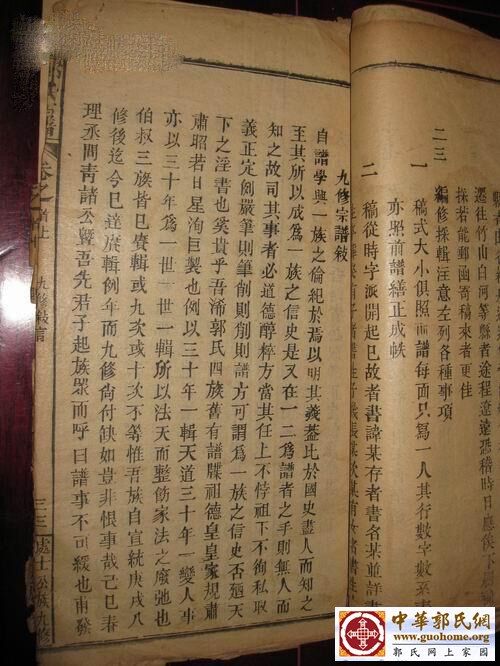 遷往竹山白河等縣者途程遼遠恐稽時日應俟下
採若能郵函寄稿來者更佳
二三
編修採輯注意左列各種事項
一 稿式大小俱照前譜每面只為一人其行數字數
亦照前譜繕正成帙
二 稿從時字派開起已故者書諱某存者書名某並詳
九修宗譜敘
自譜學興一族之倫紀於焉以明其義蓋比於國史盡人而知之
至其所以成為一族之信史是又在一二為譜者之手則無人而
知之故司其事者必道德醇粹方當其任上不悖祖下不徇私取
義正定例嚴筆則筆削則削則譜方可謂為一族之信史否適天
下之淫書也奚貴乎吾浠郭氏四族舊有譜牒祖德皇皇家規肅
肅昭若日星洵巨製也例以三十年一輯天道三十年一變人事
亦以三十年為一世一世一輯所以法天而整飭家法之廢弛也
伯叔三族皆已賡輯或九次或十次不等惟吾族自宣統庚戌八
修後迄今已達賡輯例年而九修尚付缺如豈非恨事哉己巳春
理丞問青諸公暨吾先君子起族眾而呼曰譜事不可緩也甫發
卷之首上
九修敘言
三三
中華郭氏網
www.guohome.org
郭氏网上家园